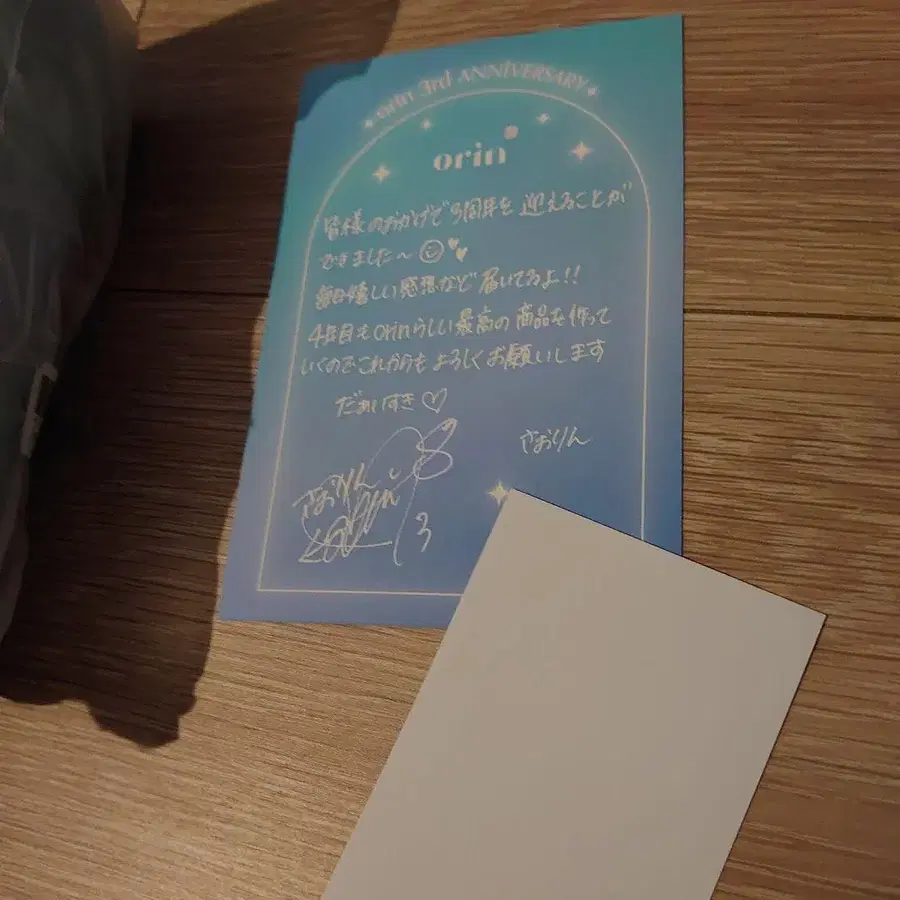 orin 3rd ANNIVERSARY
orin
皆様のおかげで3周年を迎えることが
できました〜
毎日嬉しい感想など届いてるよ!!
4年目もorinらしい最高の商品を作って
いくのでこれからもよろしくお願いします
だぁいすき♡
さおりん
さおりん